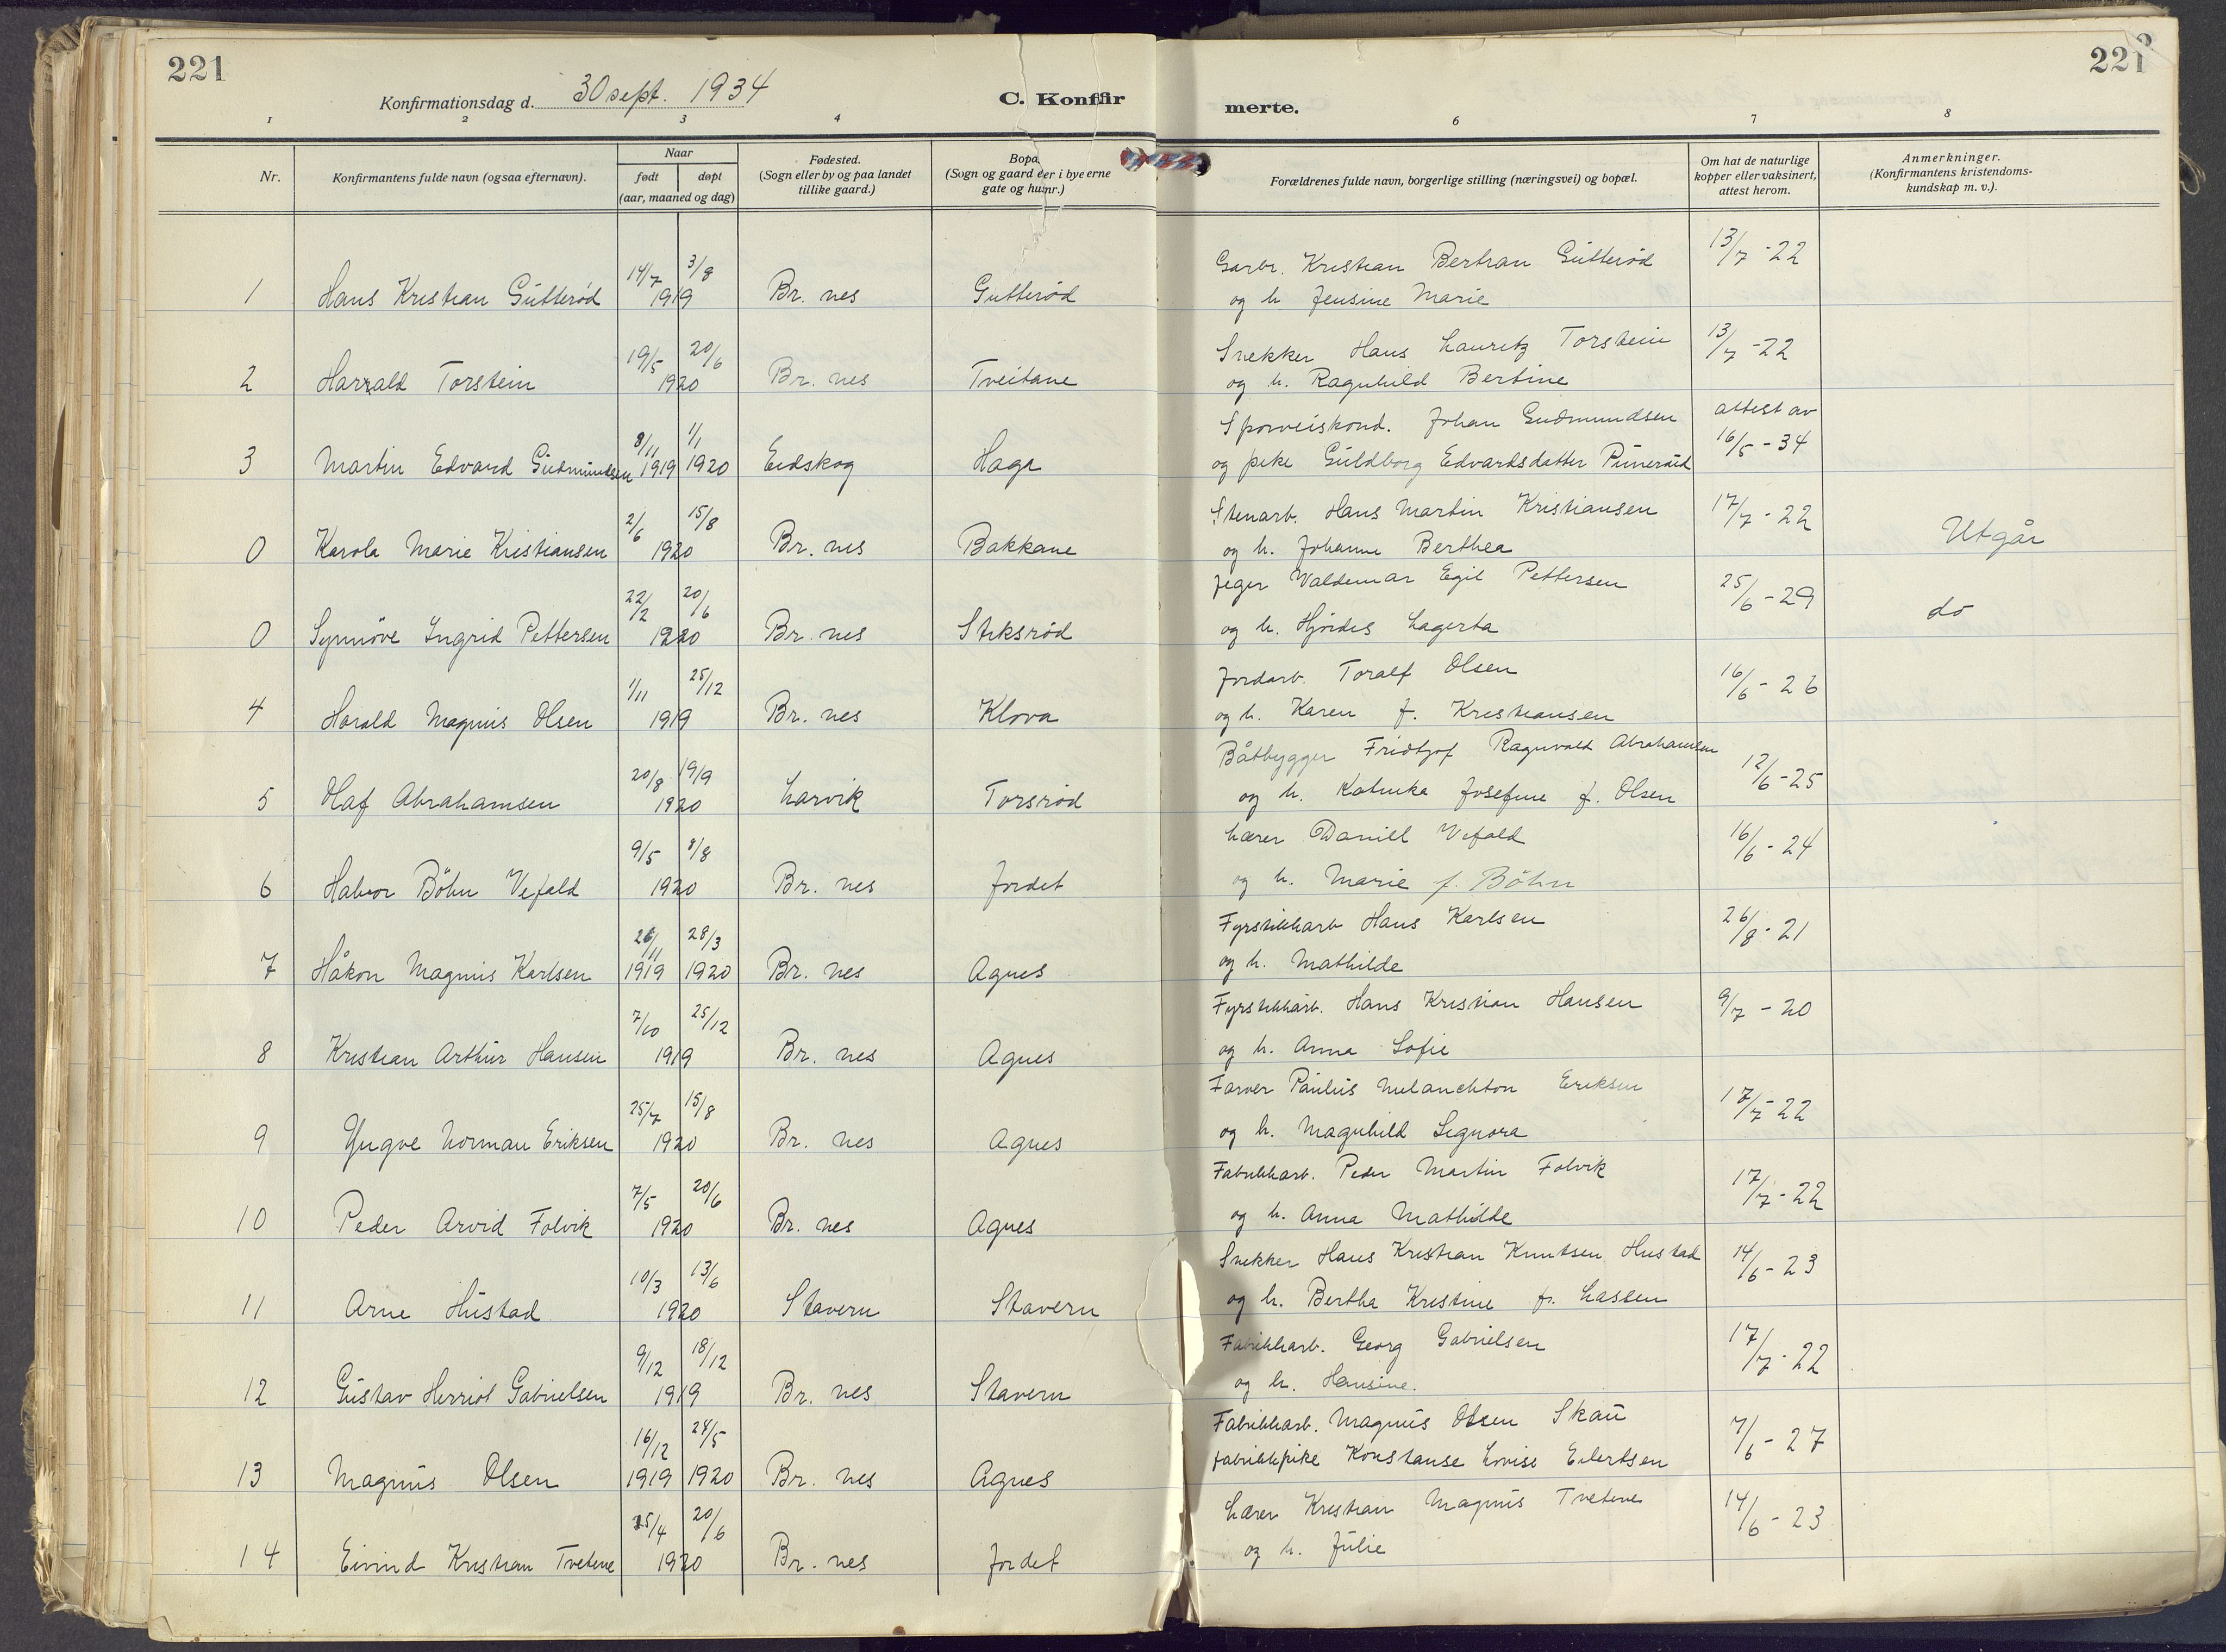 221
221
Konfirmationsdag d. 30 sept. 1934
C. Konfir
merte.
1 2 3 4 6 7 8
Nr.
Konfirmantens fulde navn (ogsaa efternavn).
Naar
født døpt
(aar, maaned og dag)
Fødested.
(Sogn eller by og paa landet
tillike gaard.)
Bopæ
(Sogn og gaard eller i byerne
gate og husnr.)
Forældrenes fulde navn, borgerlige stilling (næringsvei) og bopæl.
Om hat de naturlige
kopper eller vaksinert,
attest herom.
Anmerkninger.
(Konfirmantens kristendoms-
kundskap m. v.).
14/7 3/8 Garbr. Kristian Bertran Gutterød 13/7 - 22
1 Hans Kristian Gutterød 1919 Br. nes Gutterød og h. Jensine Marie
19/5 20/6 Snekker Hans Lauritz Torstein 13/7 - 22
2 Harald Torstein 1920 Br. nes Tveitane og h. Ragnhild Bertine
8/11 1/1 Sporveiskond. Johan Gudmundsen attest av
3 Martin Edvard Gudmundsen 1919 1920 Eidskog Haga og pike Guldborg Edvardsdatter 16/5 - 34
2/6 15/8 Stenarb. Hans Martin Kristiansen 17/7 - 22
0 Karola Marie Kristiansen 1920 Br. nes Bakkane og h. Johanne Berthea Utgår
22/2 20/6 Jeger Valdemar Egil Pettersen 25/6 - 29
0 Synnöve Ingrid Pettersen 1920 Br. nes Stiksrød og h. Hjördis Lagerta do
1/11 25/12 Jordarb. Toralf Olsen 16/6 - 26
4 Harald Magnus Olsen 1919 Br. nes Klova og h. Karen f. Kristiansen
20/8 19/9 Båtbygger Fridtjof Ragnvald Abrahamsen 12/6 - 25
5 Olaf Abrahamsen 1920 Larvik Torsrød og h. Katinka Josefine f. Olsen
9/5 8/8 Lærer Daniel Vefald 16/6 - 24
6 Halvor Böhn Vefald 1920 Br. nes Jordet og h. Marie f. Böhn
26/11 28/3 Fyrstikkarb Hans Karlsen 26/8 - 21
7 Håkon Magnus Karlsen 1919 1920 Br. nes Agnes og h. Mathilde
7/10 25/12 Fyrstikkarb. Hans Kristian Hansen 9/7 - 20
8 Kristian Arthur Hansen 1919 Br. nes Agnes og h. Anna Sofie
25/7 15/8 Farver Paulus Melanchton Eriksen 17/7 - 22
9 Yngve Norman Eriksen 1920 Br. nes Agnes og h. Magnhild Signora
7/5 20/6 Fabrikkarb. Peder Martin Folvik 17/7 - 22
10 Peder Arvid Folvik 1920 Br. nes Agnes og h. Anna Mathilde
10/3 13/6 Snekker Hans Kristian Knutsen Hustad 14/6 - 23
11 Arne Hustad 1920 Stavern Stavern og h. Bertha Kristine f. Lassen
9/12 18/12 Fabrikkarb. Georg Gabrielsen 17/7 - 22
12 Gustav Herriot Gabrielsen 1919 Br. nes Stavern og h. Hansine.
16/12 24/5 Fabrikkarb. Magnus Olsen Skau 7/6 - 27
13 Magnus Olsen 1919 1920 Br. nes Agnes fabrikkpike Konstanse Lovise Eilertsen
25/4 20/6 Lærer Kristian Magnus Tvetene 14/6 - 23
14 Eivind Kristian Tvetene 1920 Br. nes Jordet og h. Julie